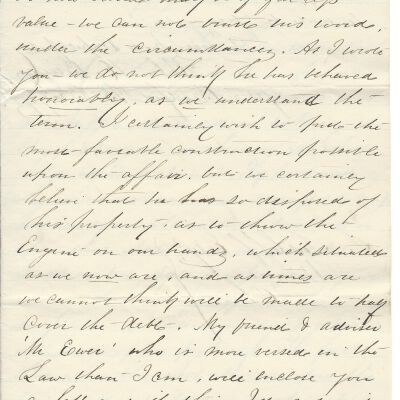 value - we can not trust his word,
under the circumstances. As I wrote
you - we do not think he has behaved
honorably, as we understand the
term. I certainly wish to put the
most favorable construction possible
upon the affair, but we certainly
believe that he has so disposed of
his property, as to throw the
Engine on our hands, which situated
as we now are, and as times are
we cannot think will be made to pay
over the debt. My friend & adviser
'Mr Ewer' who is more versed in the
Law than I am, will enclose you